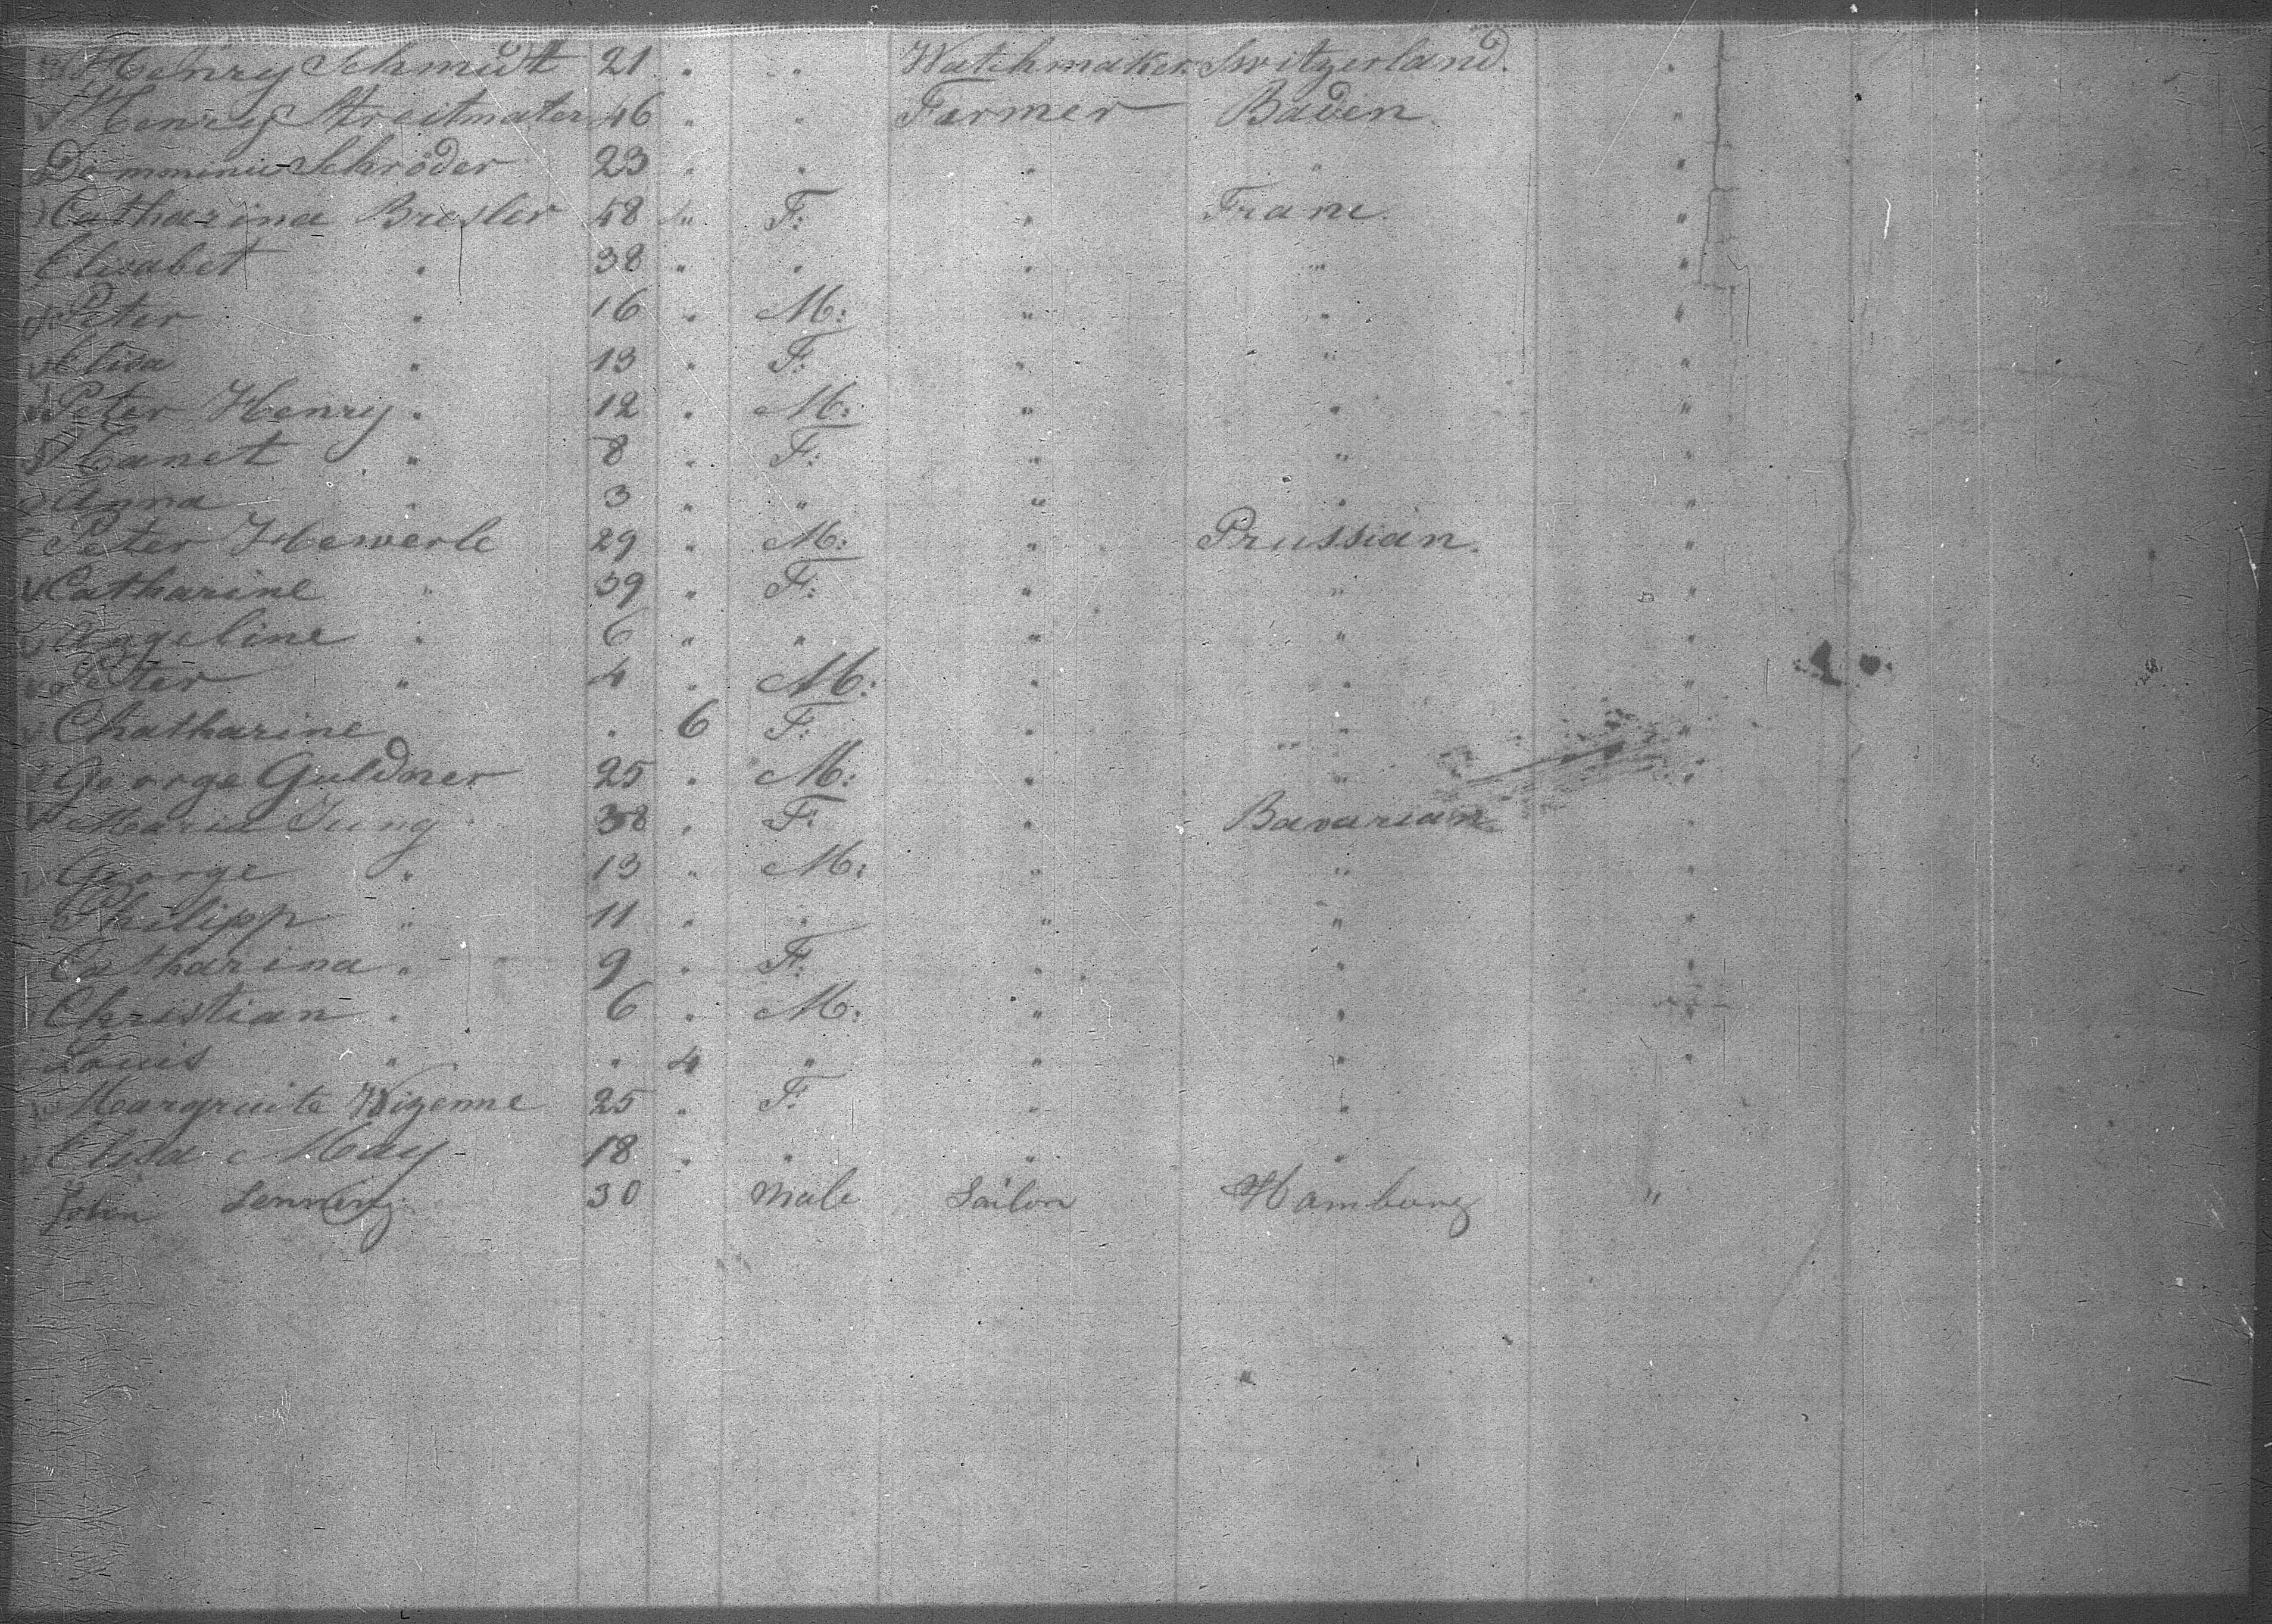 Henry Schmidt 21 " " Watchmaker. Switzerland. "
Henry Streitmater 46 " " Farmer Baden "
Domminic Schröder 23 " " " " "
Catharina Bresler 48 " F: " Franc. "
Elisabet " 38 " " " " "
Peter " 16 " M: " " "
Elisa " 13 " F: " " "
Peter Henry " 12 " M: " " "
Hanet " 8 " F: " " "
Anna " 3 " " " " "
Peter Hewerle 29 " M: " Prussian. "
Catharine " 39 " F: " " "
Angeline " 6 " " " " "
Peter " 4 " M: " " "
Chatharine " 6 F: " " "
George Guldner 25 " M: " " "
Maria Jung 38 " F: " Bavarian "
George " 13 " M: " " "
Philipp " 11 " " " " "
Catharina " 9 " F: " " "
Christian " 6 " M: " " "
Louis " " 4 " " " "
Margruite 25 " F. " "
Elisa May 18 " " " "
John 30 Male Sailor Hamburg "